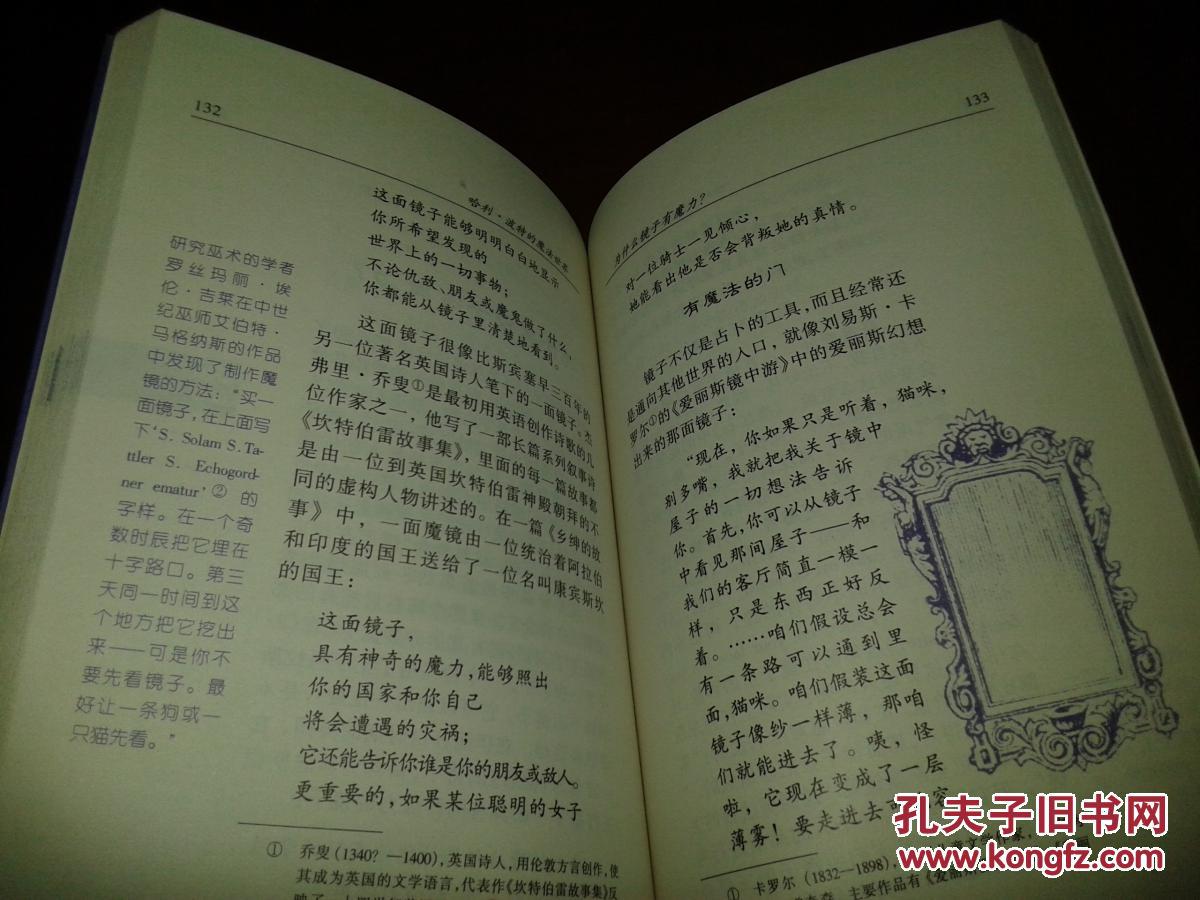 132
哈利·波特的魔法世界
这面镜子能够明明白白地显示
你所希望发现的
世界上的一切事物；
不论仇敌、朋友或魔鬼做了什么，
你都能从镜子里清楚地看到。
这面镜子很像比斯宾塞早三百年的
另一位著名英国诗人笔下的一面镜子。杰
弗里·乔叟①是最初用英语创作诗歌的几
位作家之一，他写了一部长篇系列叙事诗
《坎特伯雷故事集》，里面的每一篇故事都
是由一位到英国坎特伯雷神殿朝拜的不
同的虚构人物讲述的。在一篇《乡绅的故
事》中，一面魔镜由一位统治着阿拉伯
和印度的国王送给了一位名叫康宾斯坎
的国王：
这面镜子，
具有神奇的魔力，能够照出
你的国家和你自己
将会遭遇的灾祸；
它还能告诉你谁是你的朋友或敌人。
更重要的，如果某位聪明的女子
研究巫术的学者
罗丝玛丽·埃
伦·吉莱在中世
纪巫师艾伯特·
马格纳斯的作品
中发现了制作魔
镜的方法：“买一
面镜子，在上面写
下‘S. Solam S. Ta-
ttler S. Echogord-
ner ematur’② 的
字样。在一个奇
数时辰把它埋在
十字路口。第三
天同一时间到这
个地方把它挖出
来——可是你不
要先看镜子。最
好让一条狗或一
只猫先看。”
① 乔叟（1340？—1400），英国诗人，用伦敦方言创作，使
其成为英国的文学语言，代表作《坎特伯雷故事集》反
133
为什么镜子有魔力？
对一位骑士一见倾心，
她能看出他是否会背叛她的真情。
有魔法的门
镜子不仅是占卜的工具，而且经常还
是通向其他世界的入口，就像刘易斯·卡
罗尔①的《爱丽斯镜中游》中的爱丽斯幻想
出来的那面镜子：
“现在，你如果只是听着，猫咪，
别多嘴，我就把我关于镜中
屋子的一切想法告诉
你。首先，你可以从镜子
中看见那间屋子——和
我们的客厅简直一模一
样，只是东西正好反
着。……咱们假设总会
有一条路可以通到里
面，猫咪。咱们假装这面
镜子像纱一样薄，那咱
们就能进去了。咦，怪
啦，它现在变成了一层
薄雾！要走进去
① 卡罗尔（1832—1898），
主要作品有《爱丽
孔夫子旧书网
www.kongfz.com